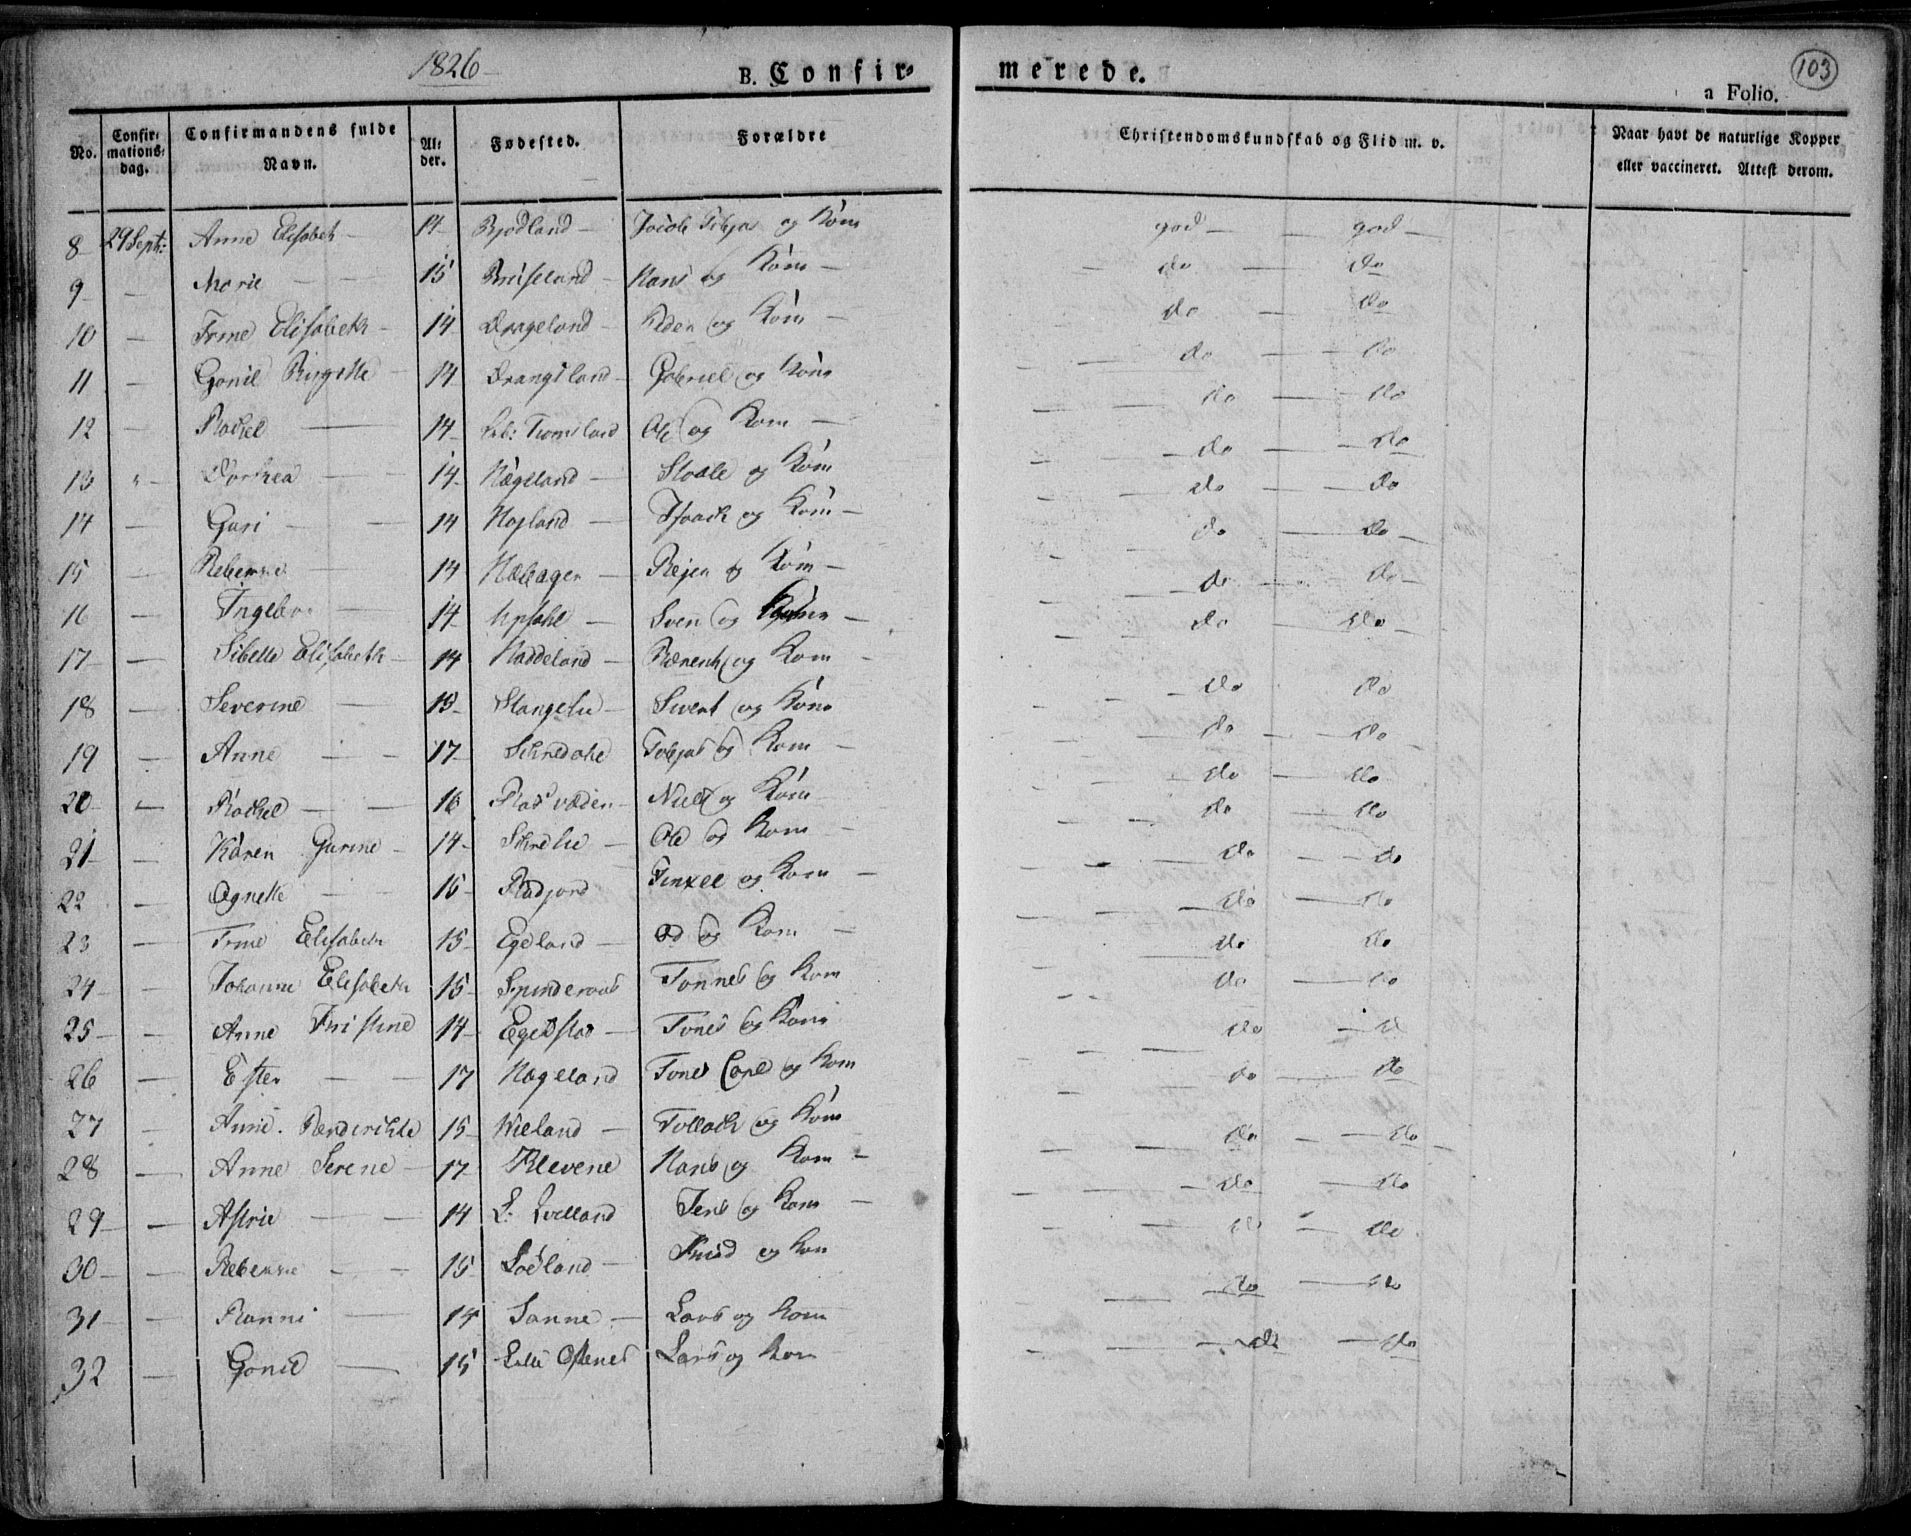 1826
B. Confir-
merede.
103
a Folio.
No. Confirmations-dag. Confirmandens fulde Navn. Alder. Fødested. Forældre Christendomskundskab og Flid m. v. Naar havt de naturlige Kopper eller vaccineret. Attest derom.
8 29 Sept: Anne Elisabeth 14 Bjodland Jacob Tobjas og Kone god god
9 — Marie 15 Hans og Kone do do
10 — Trine Elisabeth 14 Drageland Peder og Kone do do
11 — Gonil Birgitte 14 Drangsland Gabriel og Kone do do
12 — Rachel 14 Tromsland Ole og Kone do do
13 " Dorthea 14 Hægeland Staale og Kone do do
14 — Guri 14 Isaach og Kone do do
15 — Rebekke 14 Rejer og Kone do do
16 — Ingebor 14 Upsahl Sven og Kone do do
17 — Sibelle Elisabeth 14 Haddeland Berent og Kone do do
18 — Severine 15 Stangelie Sivert og Kone do do
19 — Anne 17 Tobjas og Kone do do
20 — Rachel 16 Niels og Kone do do
21 — Karen Gurine 14 Skrelie Ole og Kone do do
22 — Agnethe 15 og Kone do do
23 — Trine Elisabeth 15 Egeland Od og Kone do do
24 — Johanne Elisabeth 15 Spinderaas Tønnes og Kone do do
25 — Anne Tristine 14 Egelstad Tønes og Kone do do
26 — Ester 17 Hægeland Tønes og Kone do do
27 — Anne 15 Wieland Tollach og Kone do do
28 — Anne Serene 17 Klevene Hans og Kone do do
29 — Astrie 14 L. Jens og Kone do do
30 — Rebekke 15 Knud og Kone do do
31 — Ranni 14 Sanne Lars og Kone do do
32 — Gonil 15 Lille Lars og Kone do do